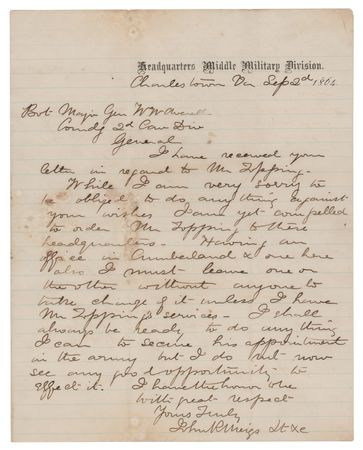 Headquarters Middle Military Division.
Charlestown Va Sep 2d 1864
Bvt Major Gen W W Averell
Comdg 2d Cav Div
General
I have received your
letter in regard to Mr Topping.
While I am very sorry to
be obliged to do anything against
your wishes I am yet compelled
to order Mr Topping to these
headquarters - Having an
office in Cumberland & one here
also I must leave one or
the other without anyone to
take charge of it unless I have
Mr Topping's services - I shall
always be ready to do anything
I can to secure his appointment
in the army but I do not now
see any good opportunity to
effect it. I have the honor to be
with great respect
Yours Truly
John R Meigs Lt &c